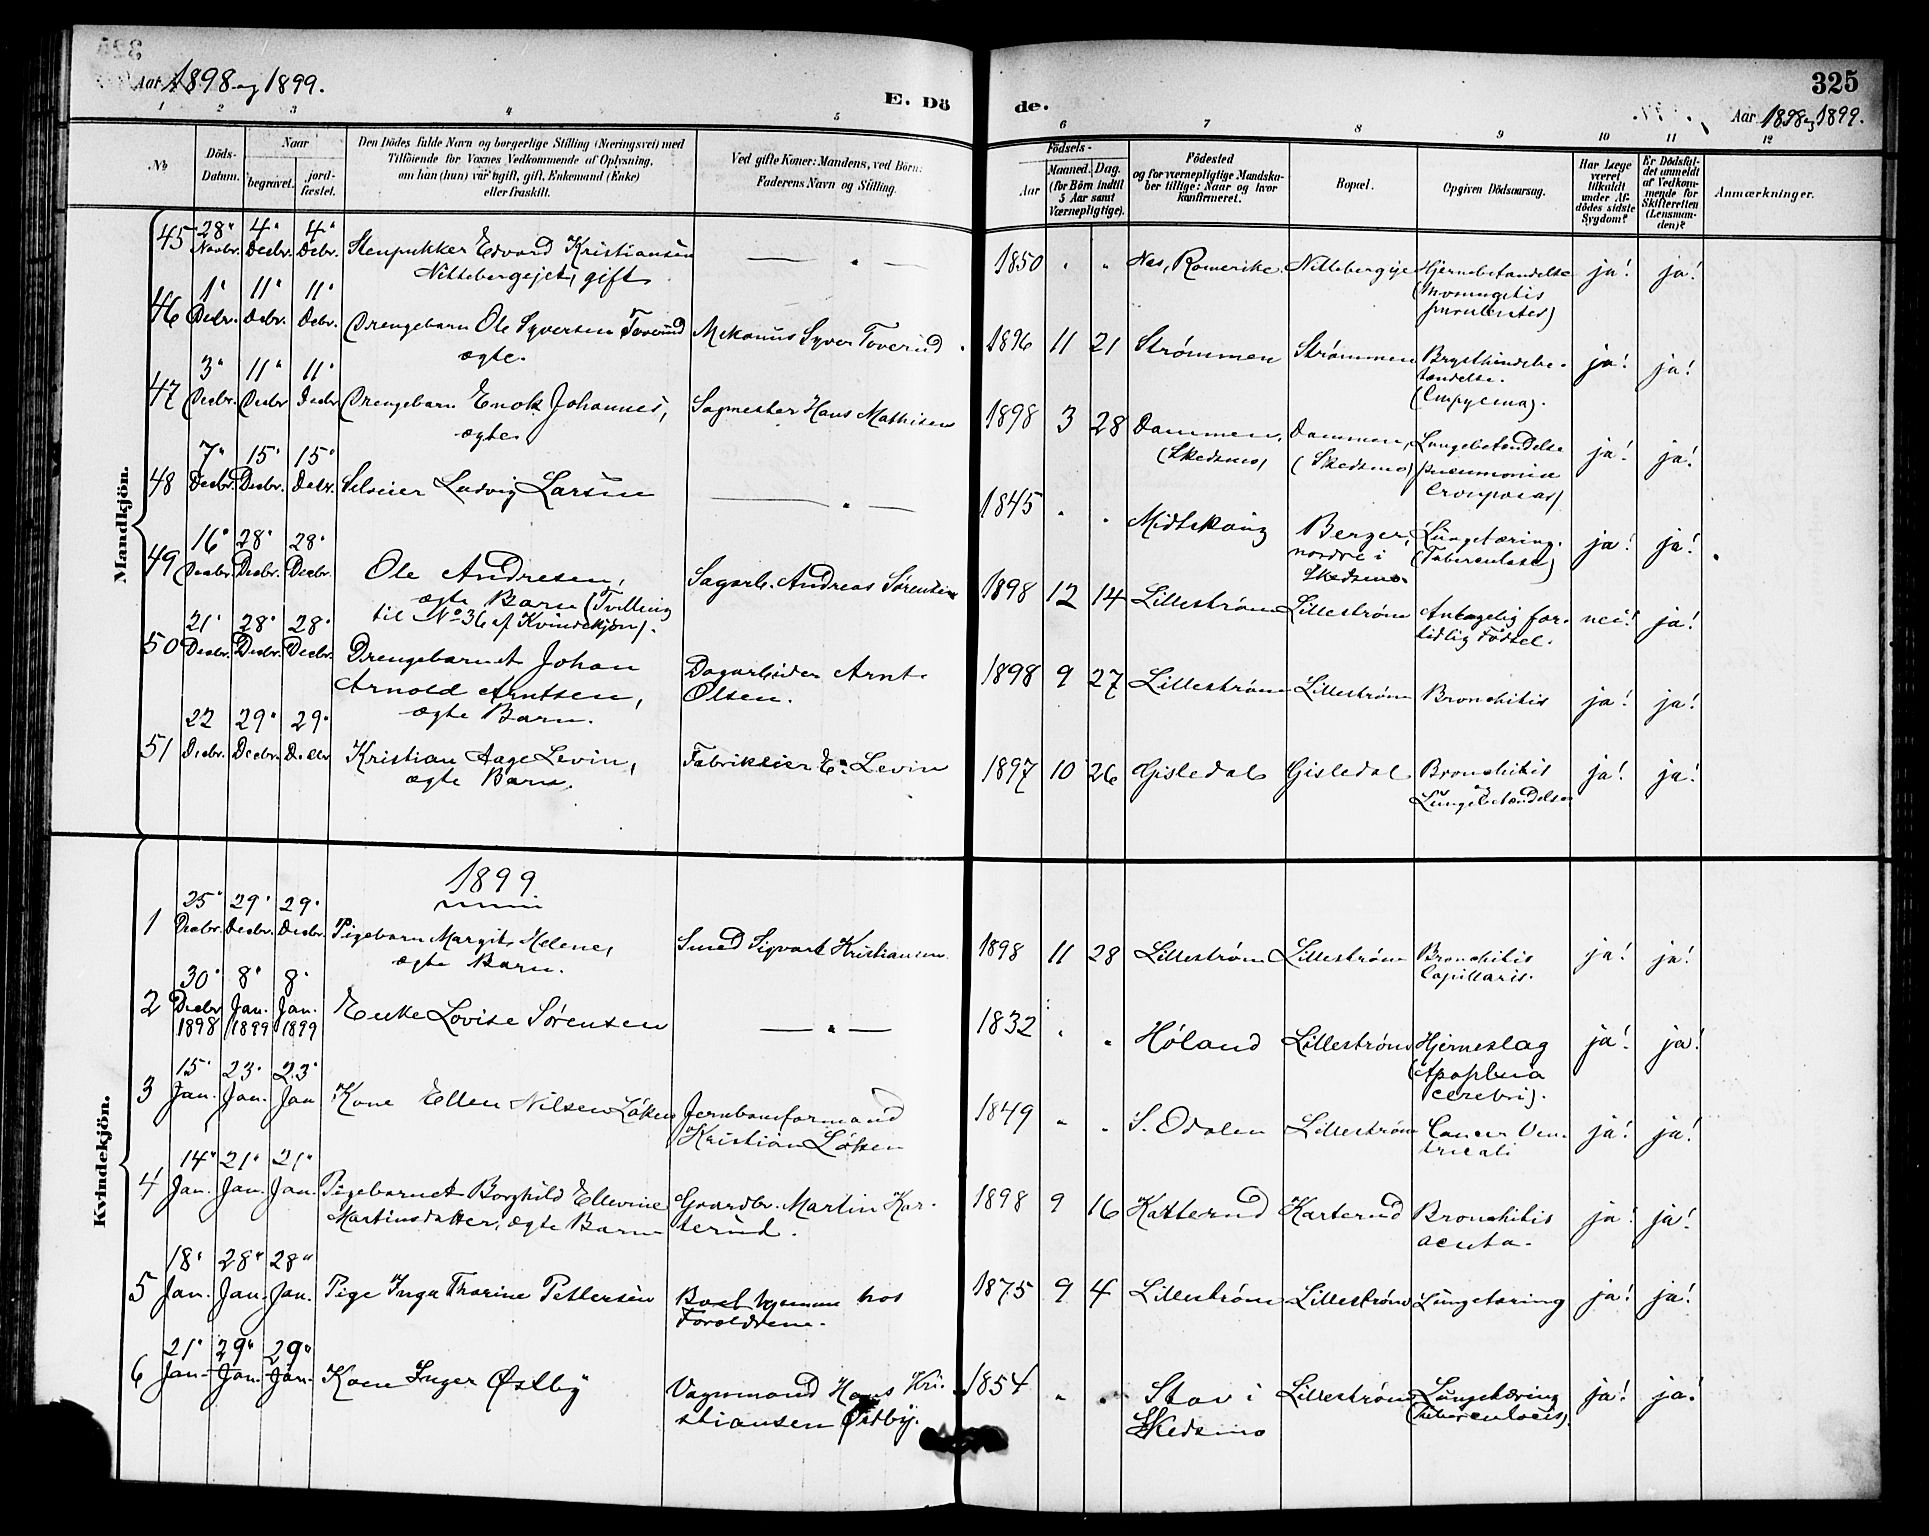 Aar 1898 og 1899.
E. Dö
de.
325
Aar 1898 og 1899.
1 2 3 4 5 6 7 8 9 10 11 12
No.
Döds-
Datum.
Naar
begravet.
jord-
fæstet.
Den Dödes fulde Navn og borgerlige Stilling (Næringsvei) med
Tilföiende for Voxnes Vedkommende af Oplysning,
om han (hun) var ugift, gift, Enkemand (Enke)
eller fraskilt.
Ved gifte Koner: Mandens, ved Börn:
Faderens Navn og Stilling.
Födsels-
Aar
Maaned. Dag.
(for Börn indtil
5 Aar samt
Værnepligtige).
Födested
og for værnepligtige Mandska-
ber tillige: Naar og hvor
konfirmeret.
Bopæl.
Opgiven Dödsaarsag.
Har Læge
været
tilkaldt
under Af-
dödes sidste
Sygdom?
Er Dödsfal-
det anmeldt
af Vedkom-
mende for
Skifteretten
(Lensman-
den)?
Anmærkninger.
Mandkjön.
45 28' Novbr. 4' Decbr. 4' Debr. Stenpukker Edvard Kristiansen — " — 1850 " " Nes, Romerike Nittebergeje Hjernebetændelse ja! ja!
Nittebergejet, gift.
46 1' Decbr. 11' Debr. 11' Debr. Drengebarn Ole Syversen Toverud Mekanus Syver Toverud. 1896 11 21 Strømmen Strømmen Brysthindebe- ja! ja!
ægte. tændelse.
(Empyema).
47 3' Decbr. 11' Decbr 11' Decbr Drengebarn Enok Johannes, Sagmester Hans Mathisen 1898 3 28 Dammen, Dammen, Lungebetændelse ja! ja!
ægte. (Skedsmo) (Skedsmo) (pneumonia
crouposa)
48 7' Decbr. 15' Decbr. 15' Debr. Selveier Ludvig Larsen — " — 1845 " " Midtskoug Berger, Lungetæring. ja! ja!
nordre i (Tuberculose)
Skedsmo.
49 16' Decbr. 28' Decbr. 28' Decbr. Ole Andresen, Sagarb. Andreas Sørensen 1898 12 14 Lillestrøm Lillestrøm Antagelig for- nei! ja!
ægte Barn (Tvilling tidlig Fødsel.
til No 36 af Kvindekjøn).
50 21' Decbr. 28' Decbr. 28' Decbr. Drengebarnet Johan Dagarbeider Arnt 1898 9 27 Lillestrøm Lillestrøm Bronchitis ja! ja!
Arnold Arntsen, Olsen.
ægte Barn.
51 22 Decbr. 29' Decbr. 29' Decbr Kristian Aage Levin, Fabrikeier E. Levin 1897 10 26 Gisledal Gisledal Bronchitis ja! ja!
ægte Barn. og
Lungebetændelse
Kvindekjön.
1899.
1 25' Decbr. 29' Decbr. 29' Decbr. Pigebarn Margit Helene, Smed Sigvart Kristiansen 1898 11 28 Lillestrøm Lillestrøm Bronchitis ja! ja!
ægte Barn. Capillaris.
2 30' Decbr 1898 8' Jan. 1899 8' Jan. 1899 Enke Lovise Sørensen — " — 1832 " " Høland Lillestrøm Hjerneslag ja! ja!
(Apoplexia
cerebri).
3 15' Jan. 23' Jan. 23' Jan Kone Ellen Nilsen Løken Jernbaneformand 1849 " " S. Odalen Lillestrøm Cancer Ven- ja! ja!
Kristian Løken triculi
4 14' Jan. 21' Jan. 21' Jan. Pigebarnet Borghild Ellevine Gaardbr. Martin Kar- 1898 9 16 Katterud Karterud Bronchitis ja! ja!
Martinsdatter, ægte Barn terud. acuta.
5 18' Jan. 28' Jan. 28' Jan. Pige Inga Thorine Pettersen Boet hjemme hos 1875 9 4 Lillestrøm Lillestrøm Lungetæring ja! ja!
Forældrene.
6 21' Jan. 29' Jan. 29' Jan. Kone Inger Østby Vognmand Hans Kri- 1854 " " Stav i Lillestrøm Lungetæring ja! ja!
stiansen Østby. Skedsmo (Tuberculosis).